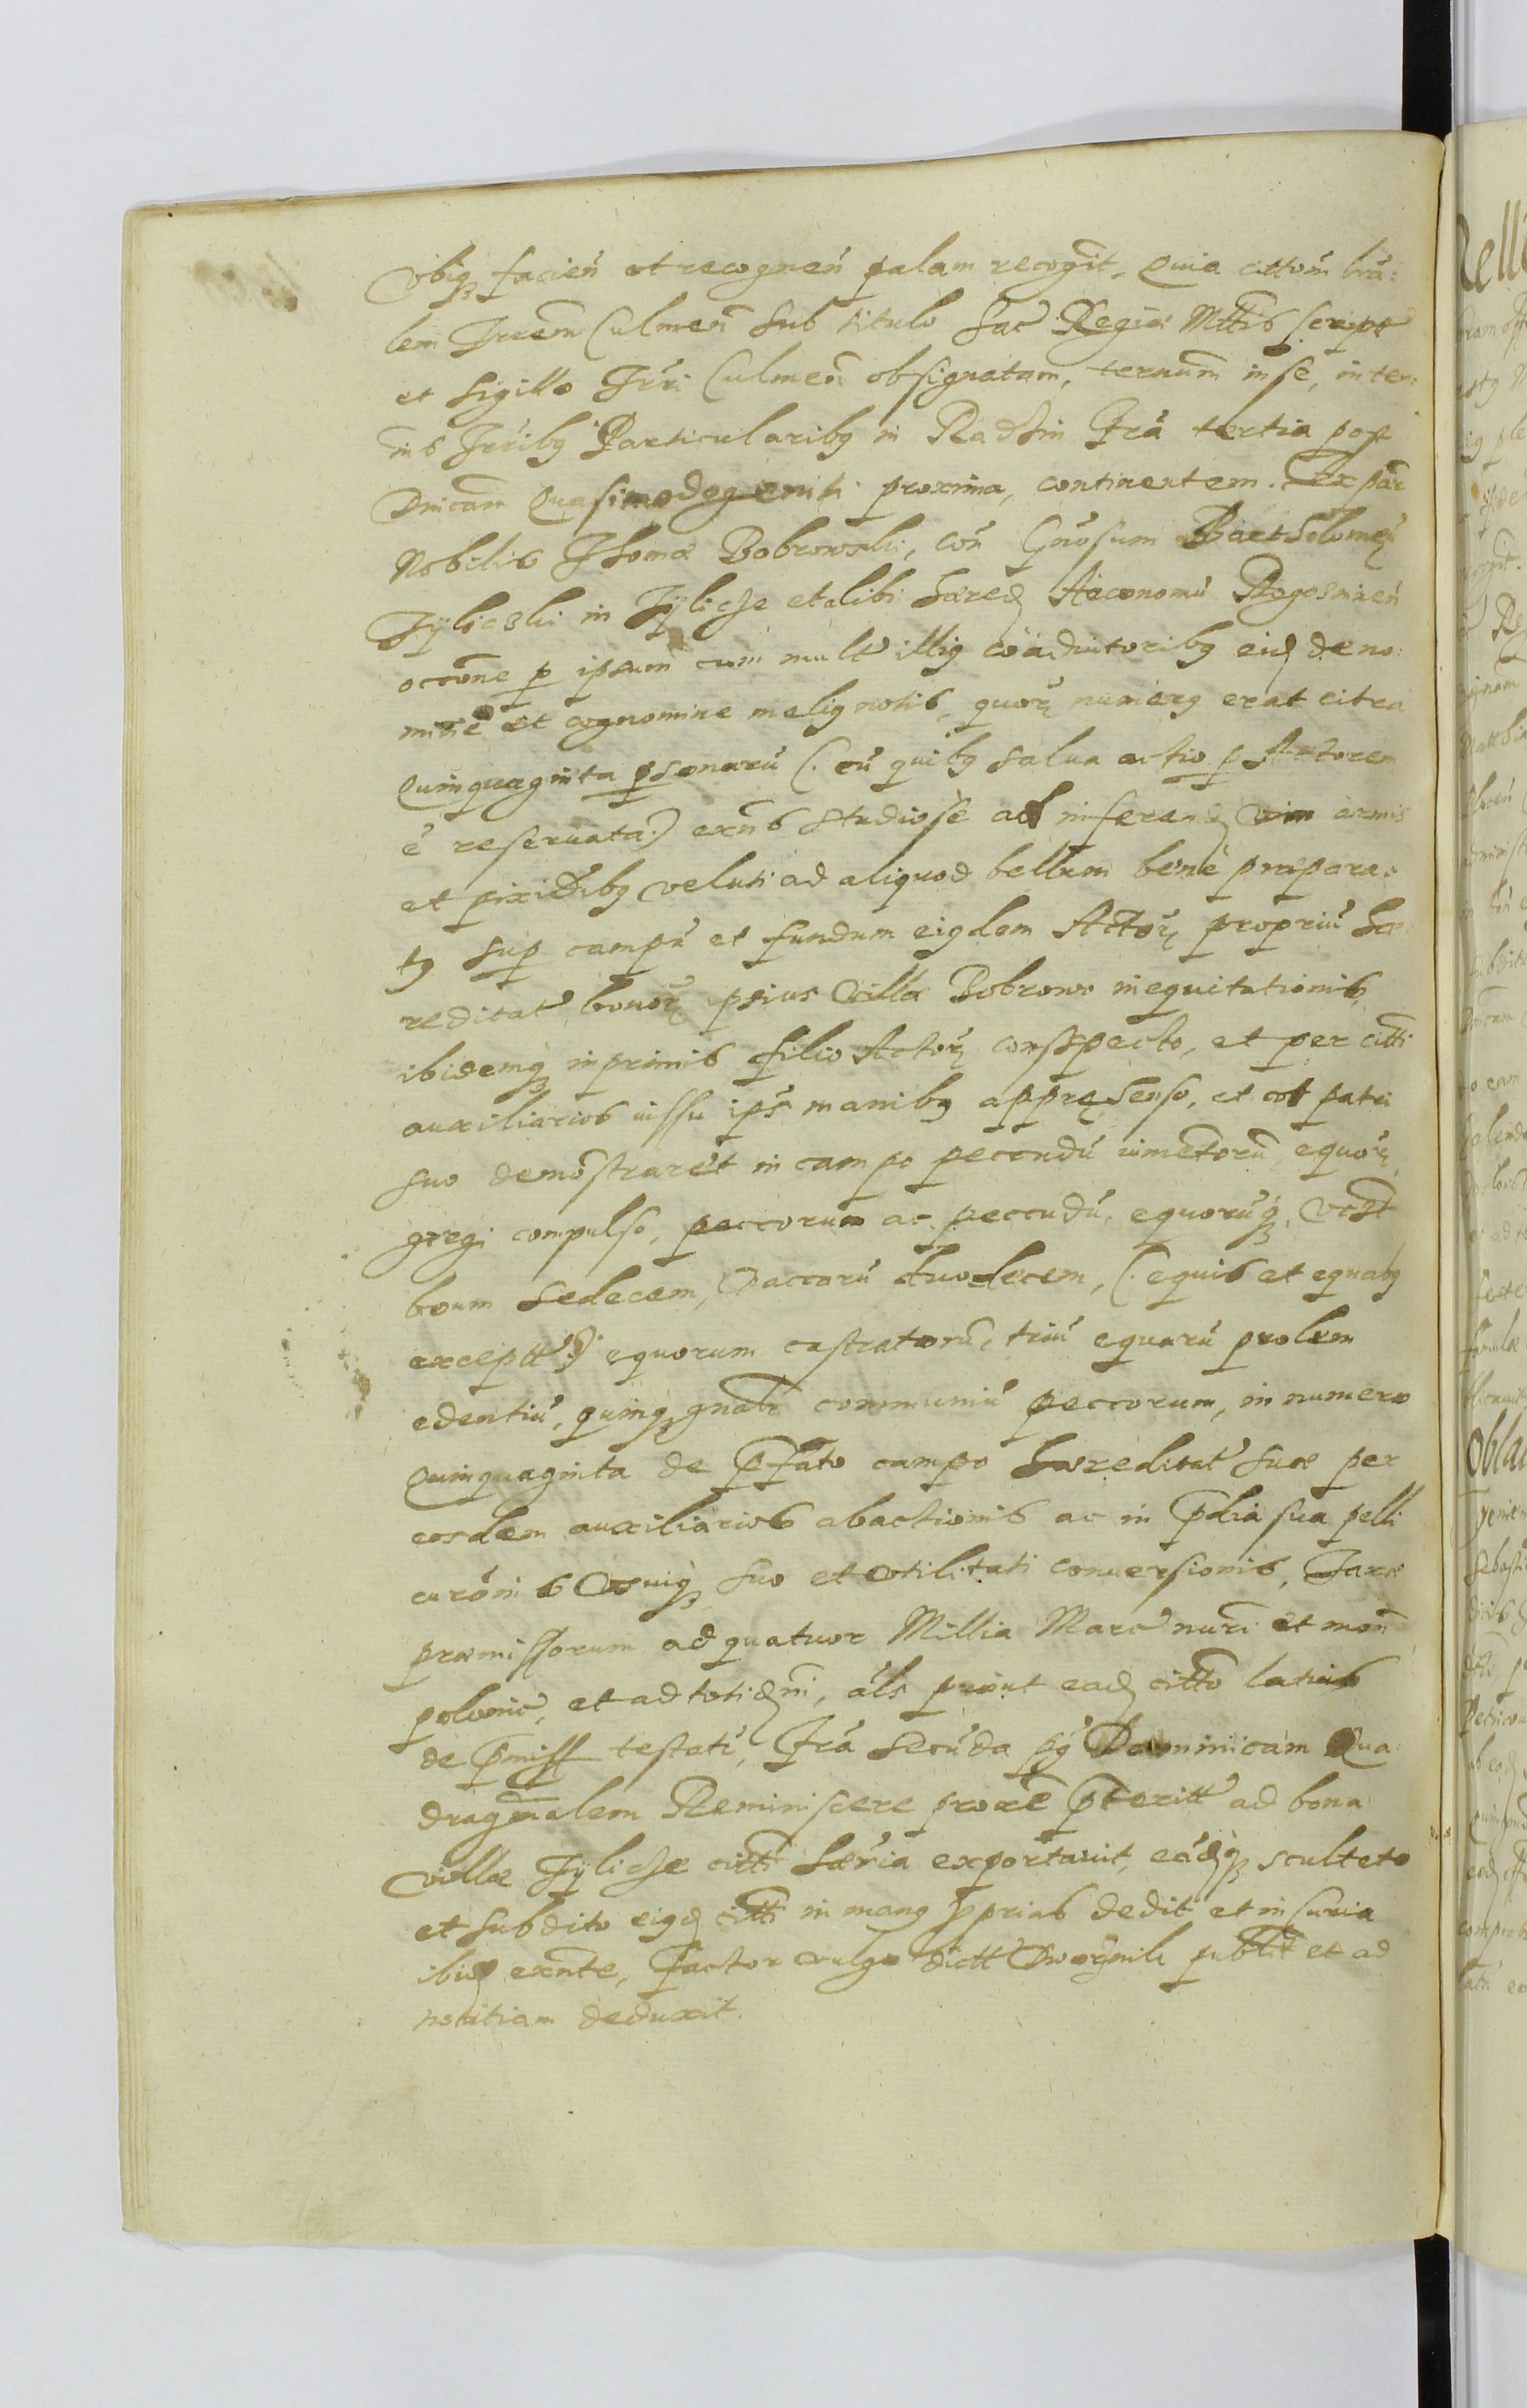 Vbiq facien et recognen palam recognit, Quia cittom lra:
lem Trem Culmen sub titulo Sac Regiæ Mttis script
et sigillo Trri Culmen obsignatam, ternum in se, in ter:
inis Trribq Particularibq in Radzin Fra tertia post
Dnicam Quasimodogeniti proxima, continentem. Ex par
Nobilis Thomæ Bobrowski, con Gnosum Bartholomeu
Tylicski in Tylicze et alibi hæred Aeconomu Rogosninen
occone p ipsum cum mult illiq coadiutoribq eid de no:
mine et cognomine meliq notis, quoru numerq erat citra
Quinquaginta psonaru (. cu quibq salua actio p Actorem
e reseruata.) exns studiose ad inferend vim armis
et pixidibq veluti ad aliquod bellum bene præpara:
tq sup campu et fundum eiqdem Actoru propriu hæ
reditat bonoru ipsius Villæ Bobrowo inequitationis,
ibidemq inprimis filio Actoru conspecto, et per citti
auxiliarios iussu ips manibq appręhenso, et vt patri
suo demostraret in campo peccudu iumetoru, equoru
gregi compulso, peccorum ac peccudu, equoruq, vczt
boum sedecem, Vaccaru duodecem, (. equis et equabq
exceptt.) equorum castratoru, triu equaru prolem
edentiu, quinq gnalr communiu peccorum, in numero
Quinquaginta de pfato campo hæreditat suæ per
eosdem auxiliarios abactionis ac in pdia sua pelli
curonis Vsuiq suo et vtilitati conuersionis, Taxæ
præmissorum ad quatuor Millia Marc nuri et mon
polonic, et ad totid ni, als prout ead citto latius
de pmiss testatu, Fra secuda pq Dominicam Qua:
dragmalem Reminiscere proxe pteritt ad bona
villæ Tylicze citti hæria exportauit, eadq sculteto
et subdito eiqd citti in manq pprias dedit et in curia
ibid exnte, Factor vulgo dictt Dworznik publt et ad
notitiam deduxit.